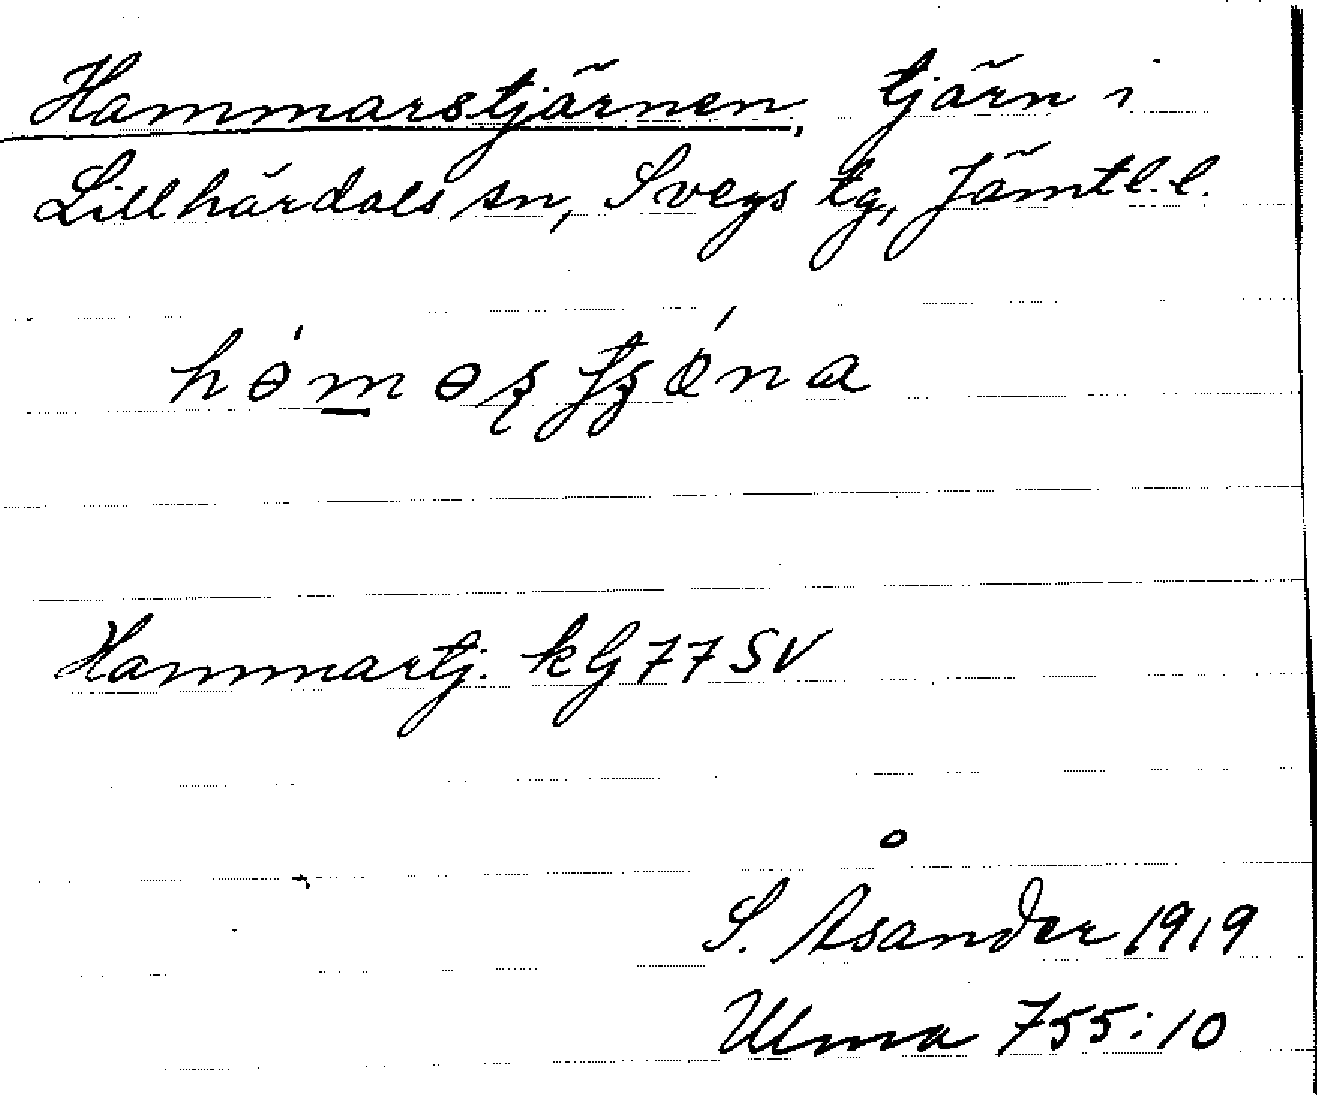 Hammarstjärnen, tjärn i
Lillhärdals sn, Svegs tg, Jämtl.l.
hɵ́mɵʂtʂǿna
Hammartj. kG77SV
S. Åsander 1919
Ulma 755:10